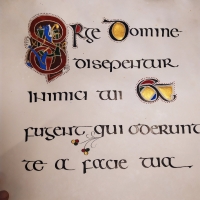 Surge Domine
disepentur
inimici tui et
fugent qui oderunt
te a facie tua